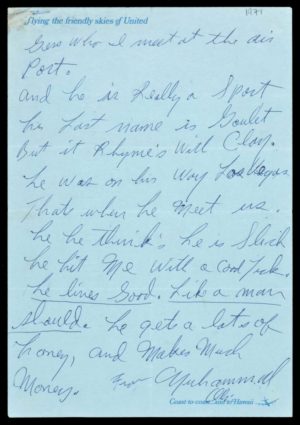 1971
flying the friendly skies of United
Gess who I meet at the air
Port.
and he is Really a Sport
his Last name is Goulet
But it Rhyme's with Clay.
he was on his way Las Vegas
Thats when he meet us.
he he think's he is Slick
he hit me with a card trick.
he lives Good. Like a man
should. he gets a lots of
honey, and Makes Much
Money. From Muhammad
Ali
Coast to coast and to Hawaii